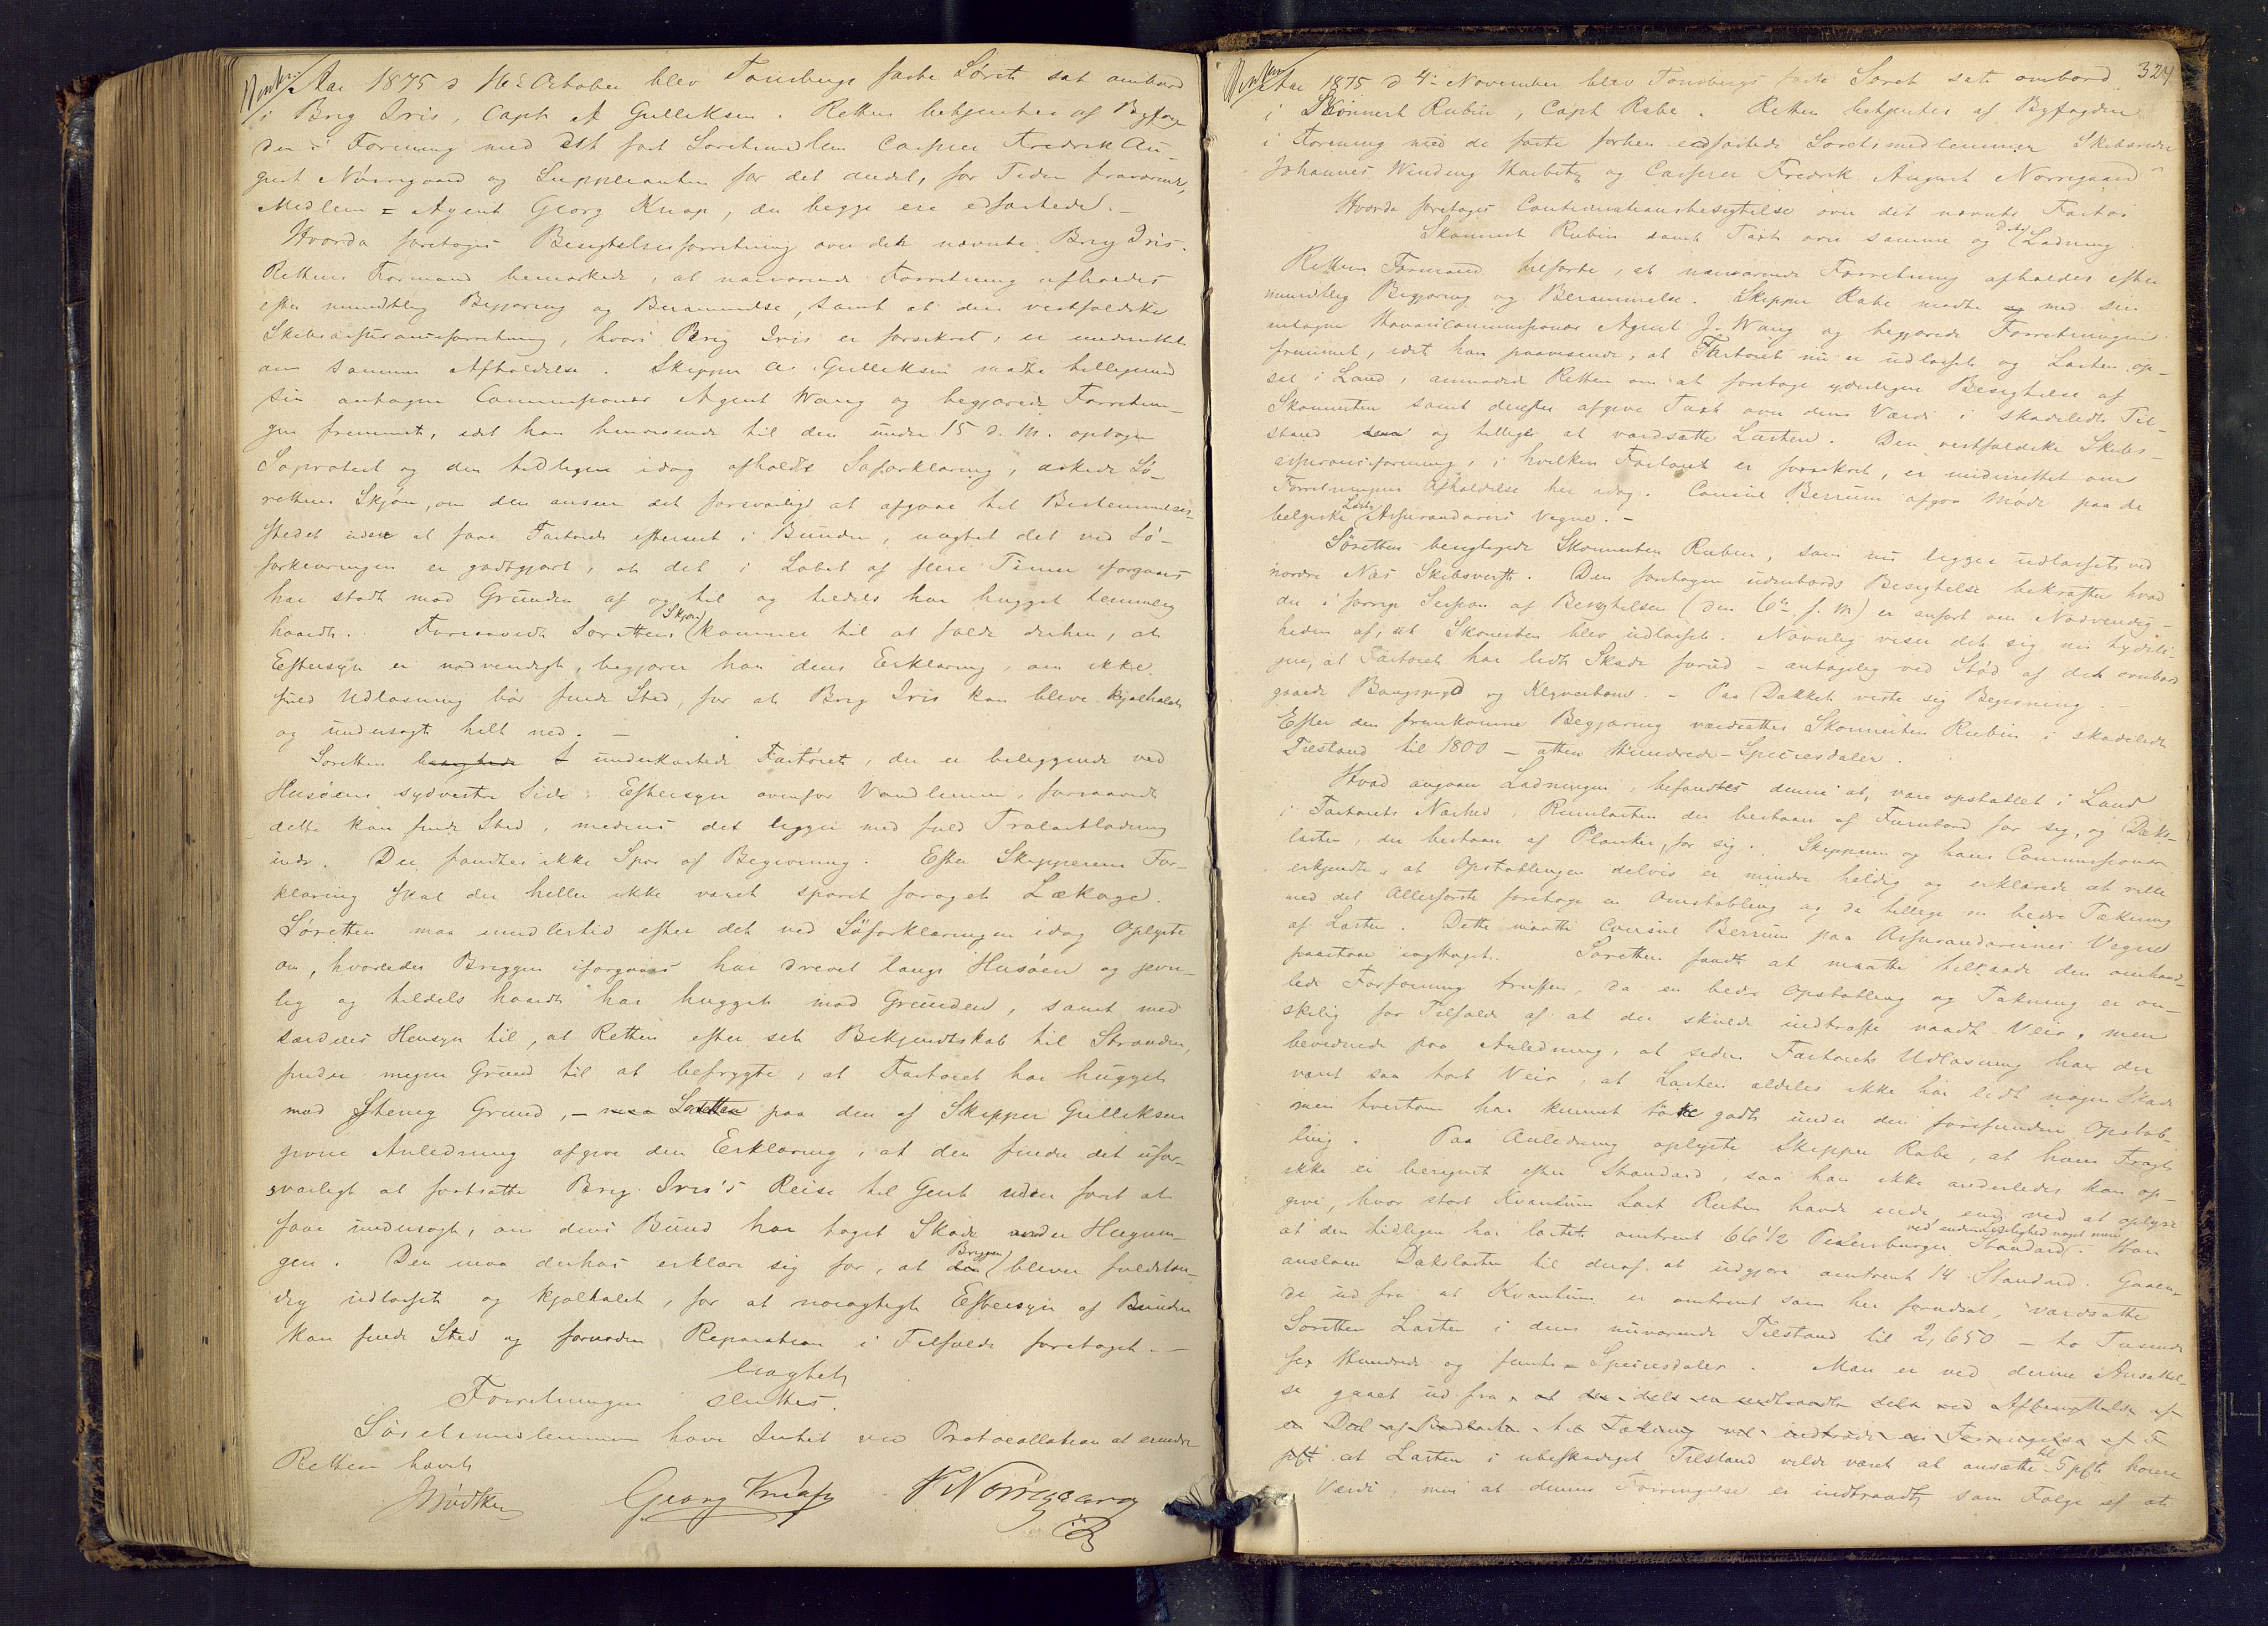 Aar 1875 d 16de October blev Tønsbergs faste Søret sat ombord
i Brig Iris, Capt A Gulleksen. Retten betjentes af Byfog-
den i Forening med det fast Søretsmedlem Casper Fredrik Au-
gust Nørregaard og Suppleanten for det andet, for Tiden fraværende,
Medlem = Agent Georg Knap, der begge ere edfæstede. –
Hvorda foretoges Besigtelsesforretning over det nævnte Brig Iris.
Rettens Formand bemærkede, at nærværende Forretning afholdes
efter mundtlig Begjæring og Berammelse, samt at den vestfoldske
Skibsassuranceforretning, hvori Brig Iris er forsikret, er underrettet
om sammes Afholdelse. Skipper A. Gulleksen mødte tilligemed
sin antagne Commissionær Agent Wang og begjærede Forretnin-
gen fremmet, idet han henvisende til den under 15 d. M. optagne
Søprotest og den tidligere idag afholdte Søforklaring, æskede Sø-
rettens Skjøn, om den ansees det forsvarligt at afgaae til Bestemmelses-
stedet uden at faae Fartøiets efterseet i Bunden, uagtet det ved Sø-
forklaringen er godtgjort, at det i Løbet af flere Timer iforgaars
har stødt mod Grunden af og til og tildels har hugget temmelig
haardt. Forsaavidt Sørettens (Skjøn) kommer til at falde derhen, at
Eftersyn er nødvendigt, begjærer han dens Erklæring, om ikke
fuld Udlosning bør finde Sted, for at Brig Iris kan blive kjølhalet
og undersøgt helt ned. –
Søretten besigtede & underkastede Fartøiet, der er beliggende ved
Husøens sydvestre Side, Eftersyn ovenfor Vandlinien, forsaavidt
dette kan finde Sted, medens det ligger med fuld Trælastladning
inde. Der fandtes ikke Spor af Begivning. Efter Skipperens For-
klaring skal der heller ikke været sporet forøget Lækage.
Søretten maa imidlertid efter det ved Søforklaringen idag oplyste
om, hvorledes Briggen iforgaars har drevet langs Husøen og jevn-
lig og tildels haardt har hugget mod Grunden, samt med
særdeles Hensyn til, at Retten efter sit Bekjendtskab til Stranden,
finder megen Grund til at befrygte, at Fartøiet har hugget
mod stenig Grund, – maa Søretten paa den af Skipper Gulleksen
givne Anledning afgive den Erklæring, at den finder det ufor-
svarligt at fortsætte Brig Iris's Reise til Gent uden først at
faae undersøgt, om dens Bund har taget Skade under Hugnin-
gen. Den maa derhos erklære sig for, at den (Briggen) bliver fuldstæn-
dig udlosset og kjølhalet, for at nøiagtigt Eftersyn af Bunden
kan finde Sted og fornøden Reparation i Tilfælde foretaget. –
Forretningen sluttet.
Søretsmedlemmerne have Intet ved Protocollationen at erindre
Retten hævet
Bødtker Georg Knap F Nørregaard
324
Aar 1875 d 4de November blev Tønsbergs faste Søret sat ombord
i Skonnert Rubin, Capt Rabe. Retten betjentes af Byfogden
i Forening med de faste forhen edfæstede Søretsmedlemmer Skibsreder
Johannes Winding Harbitz og Casper Fredrik August Nørregaard
Hvorda foretoges Continuationsbesigtelse over det nævnte Fartøi
Skonnert Rubin samt Taxt over samme og dets Ladning.
Rettens Formand tilførte, at nærværende Forretning afholdes efter
mundtlig Begjæring og Berammelse. Skipper Rabe mødte og med sin
antagne Havaricommissionær Agent J. Wang og begjærede Forretningen
fremmet, idet han paavisende, at Fartøiet nu er udlosset og Lasten op-
sat i Land, anmodede Retten om at foretage yderligere Besigtelse af
Skonnerten samt derefter afgive Taxt over dens Værdi i skadeledt Til-
stand og tilligt at værdsætte Lasten. Den vestfoldske Skibs-
assuranceforening, i hvilken Fartøiet er forsikret, er underrettet om
Forretningens Afholdelse her idag. Consul Berrum afgav Møde paa de
belgiske (Last) Assurandørers Vegne. –
Søretten besigtigede Skonnerten Rubin, som nu ligger udlosset ved
nordre Næs Skibsverft. Den foretagne udenbords Besigtelse bekræfter hvad
der i forrige Session af Besigtelsen (den 6te f. M) er anført om Nødvendig-
heden af, at Skonnerten blev udlosset. Navnlig viser det sig nu tydeli-
gere, at Fartøiet har lidt Skade forud – antagelig ved Stød af det ombord
gaaede Bougspryd og Klyverbom. – Paa Dækket viste sig Begivning. –
Efter den fremkomne Begjæring værdsattes Skonnerten Rubin i skadeledt
Tilstand til 1800 – atten Hundrede – Speciesdaler.
Hvad angaar Ladningen, befandtes denne at være opstablet i Land
i Fartøiets Nærhed, Rumlasten der bestaar af Furubord for sig, og Dæks-
lasten, der bestaar af Planker, for sig. Skipperen og hans Commissionær
erkjendte, at Opstablingen delvis er mindre heldig og erklærede at ville
med det Allerførste foretage en Omstabling og da tillige en bedre Tækning
af Lasten. Dette maatte Consul Berrum paa Assurandørernes Vegne
paastaae iagttaget. Søretten fandt at maatte tilraade den omhand-
lede Forføining truffen, da en bedre Opstabling og Tækning er øn-
skelig for Tilfælde af at der skulde indtræffe vaadt Veir, men
bevidnede paa Anledning, at siden Fartøiets Udlosning har der
været saa tørt Veir, at Lasten aldeles ikke har lidt nogen Skade
men tvertom har kunnet tørke godt under den forefundne Opstab-
ling. Paa Anledning oplyste Skipper Rabe, at hans Fragt
ikke er beregnet efter Standard, saa han ikke anderledes kan op-
give, hvor stort Kvantum Last Rubin havde inde, end ved at oplyse
at den tidligere har lastet omtrent 66 1/2 Petersburger Standard. Han
anslaar Dækslasten til deraf at udgjøre omtrent 14 Standard. Gaaen-
de ud fra at Kvantum er omtrent som her forudsat, værdsatte
Søretten Lasten i dens nuværende Tilstand til 2,650 – to Tusinde
sex Hundrede og femti – Speciesdaler. Man er ved denne Ansættel-
se gaaet ud fra, at der dels ved Afbenyttelse af
en Del af Bordlasten til Tækning
at Lasten i ubeskadiget Tilstand vilde været at ansætte til høiere
Værdi, men at denne Forringelse er indtraadt som Følge af at